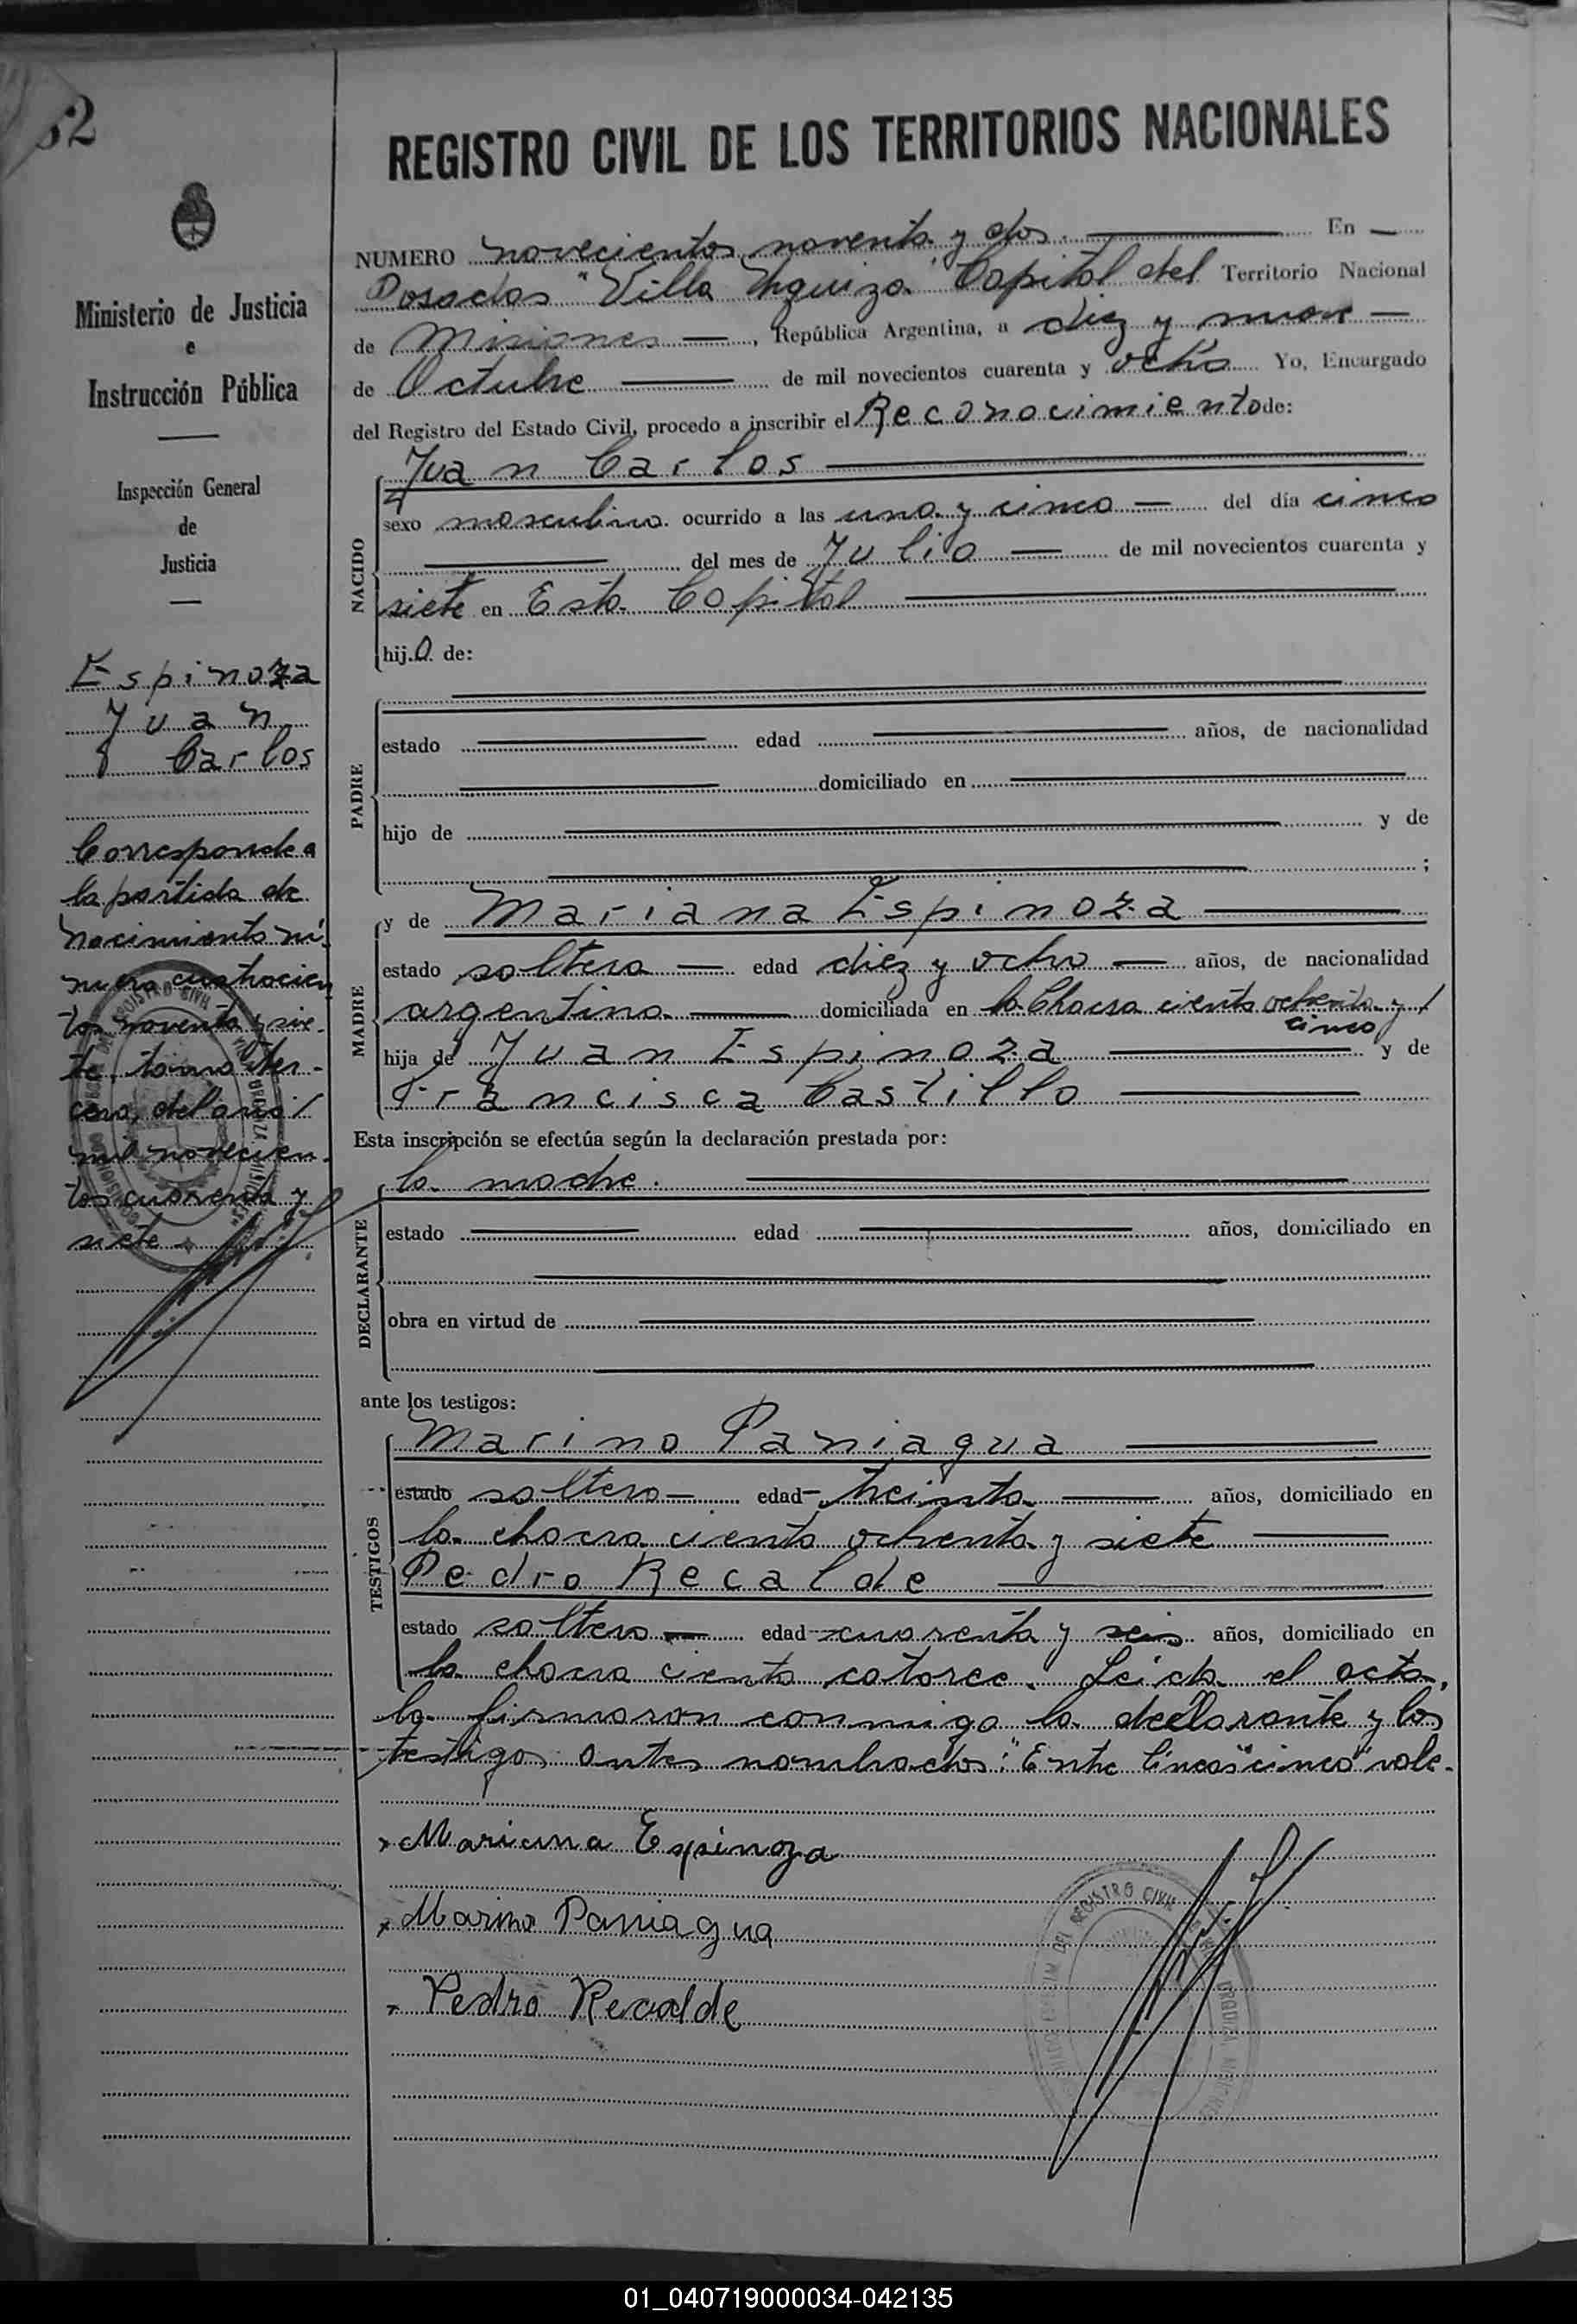 52
REGISTRO CIVIL DE LOS TERRITORIOS NACIONALES
Ministerio de Justicia
e
Instrucción Pública
Inspección General
de
Justicia
Espinoza
Juan
Carlos
Corresponde a
la partida de
nacimiento nú-
mero cuatrocien
tos noventa y sie-
te, tomo ter-
cero, del año /
mil novecien-
tos cuarenta y
siete
NUMERO novecientos noventa y dos. En
Posadas "Villa Urquiza" Capital del Territorio Nacional
de Misiones, República Argentina, a diez y nueve
de Octubre de mil novecientos cuarenta y ocho Yo, Encargado
del Registro del Estado Civil, procedo a inscribir el Reconocimiento de:
NACIDO
Juan Carlos
sexo masculino ocurrido a las una y cinco del día cinco
del mes de Julio de mil novecientos cuarenta y
siete en Esta Capital
hijo de:
PADRE
estado edad años, de nacionalidad
domiciliado en
hijo de y de
;
MADRE
y de Mariana Espinoza
estado soltera edad diez y ocho años, de nacionalidad
argentina domiciliada en la Chacra ciento ochenta y /
cinco
hija de Juan Espinoza y de
Francisca Castillo
Esta inscripción se efectúa según la declaración prestada por:
la madre.
DECLARANTE
estado edad años, domiciliado en
obra en virtud de
ante los testigos:
TESTIGOS
Marino Paniagua
estado soltero edad treinta años, domiciliado en
la chacra ciento ochenta y siete
Pedro Recalde
estado soltero edad cuarenta y seis años, domiciliado en
la chacra ciento catorce. Leida el acta,
la firmaron conmigo la declarante y los
testigos antes nombrados: "Entre líneas "cinco" vale.
Mariana Espinoza
Marino Paniagua
Pedro Recalde
REGISTRO CIVIL
01_040719000034-042135